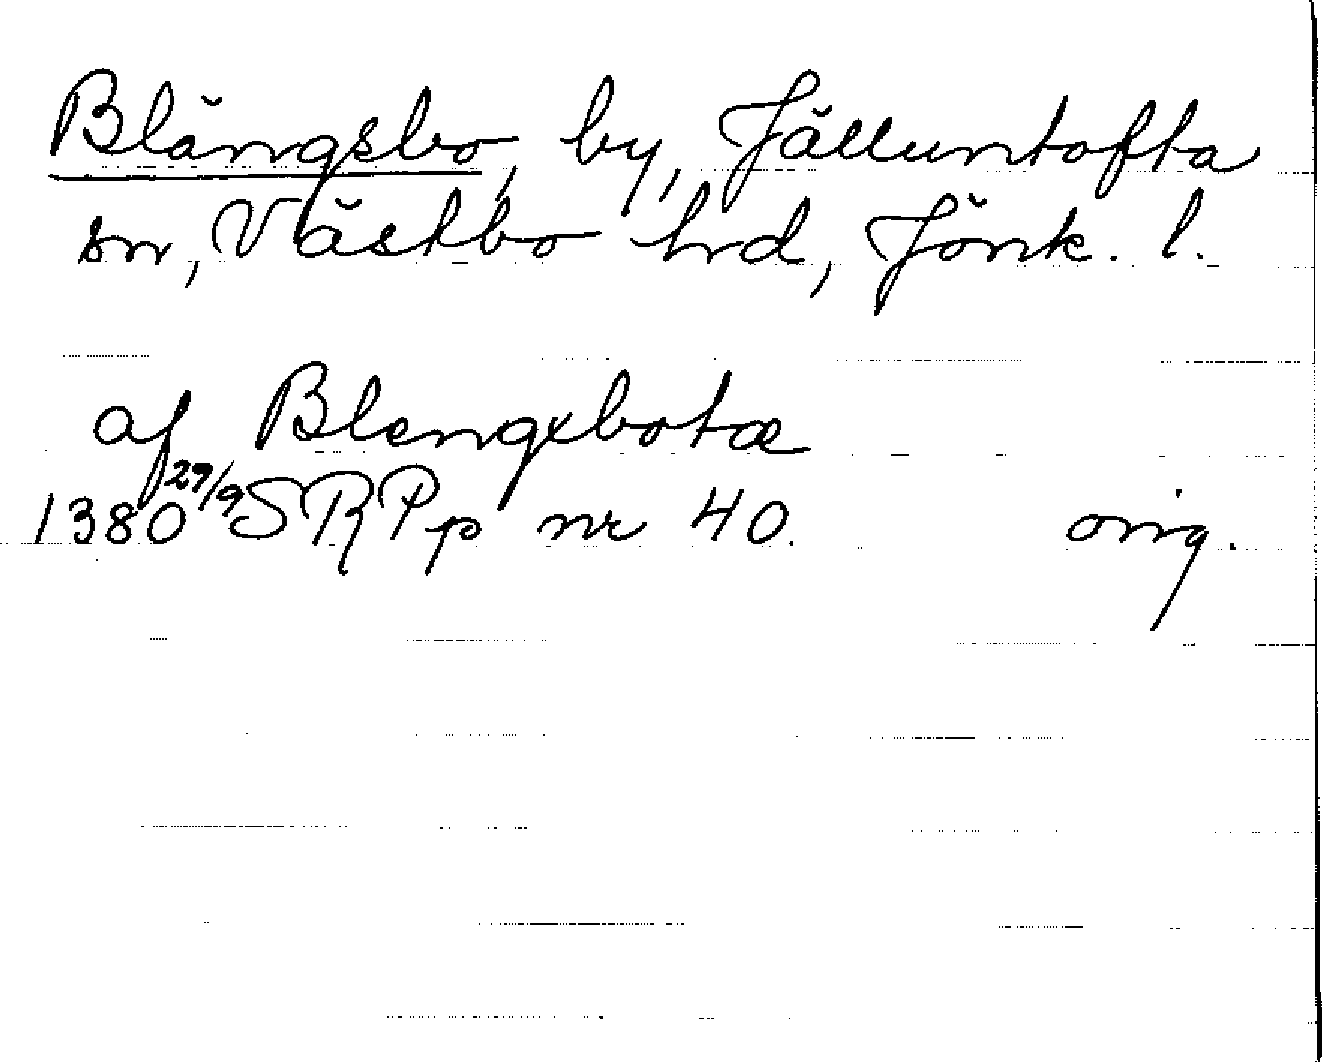 Blängsbo, by, Jälluntofta
sn, Västbo hrd, Jönk. l.
af Blengxbotæ
1380 29/9 SRPp nr 40. orig.